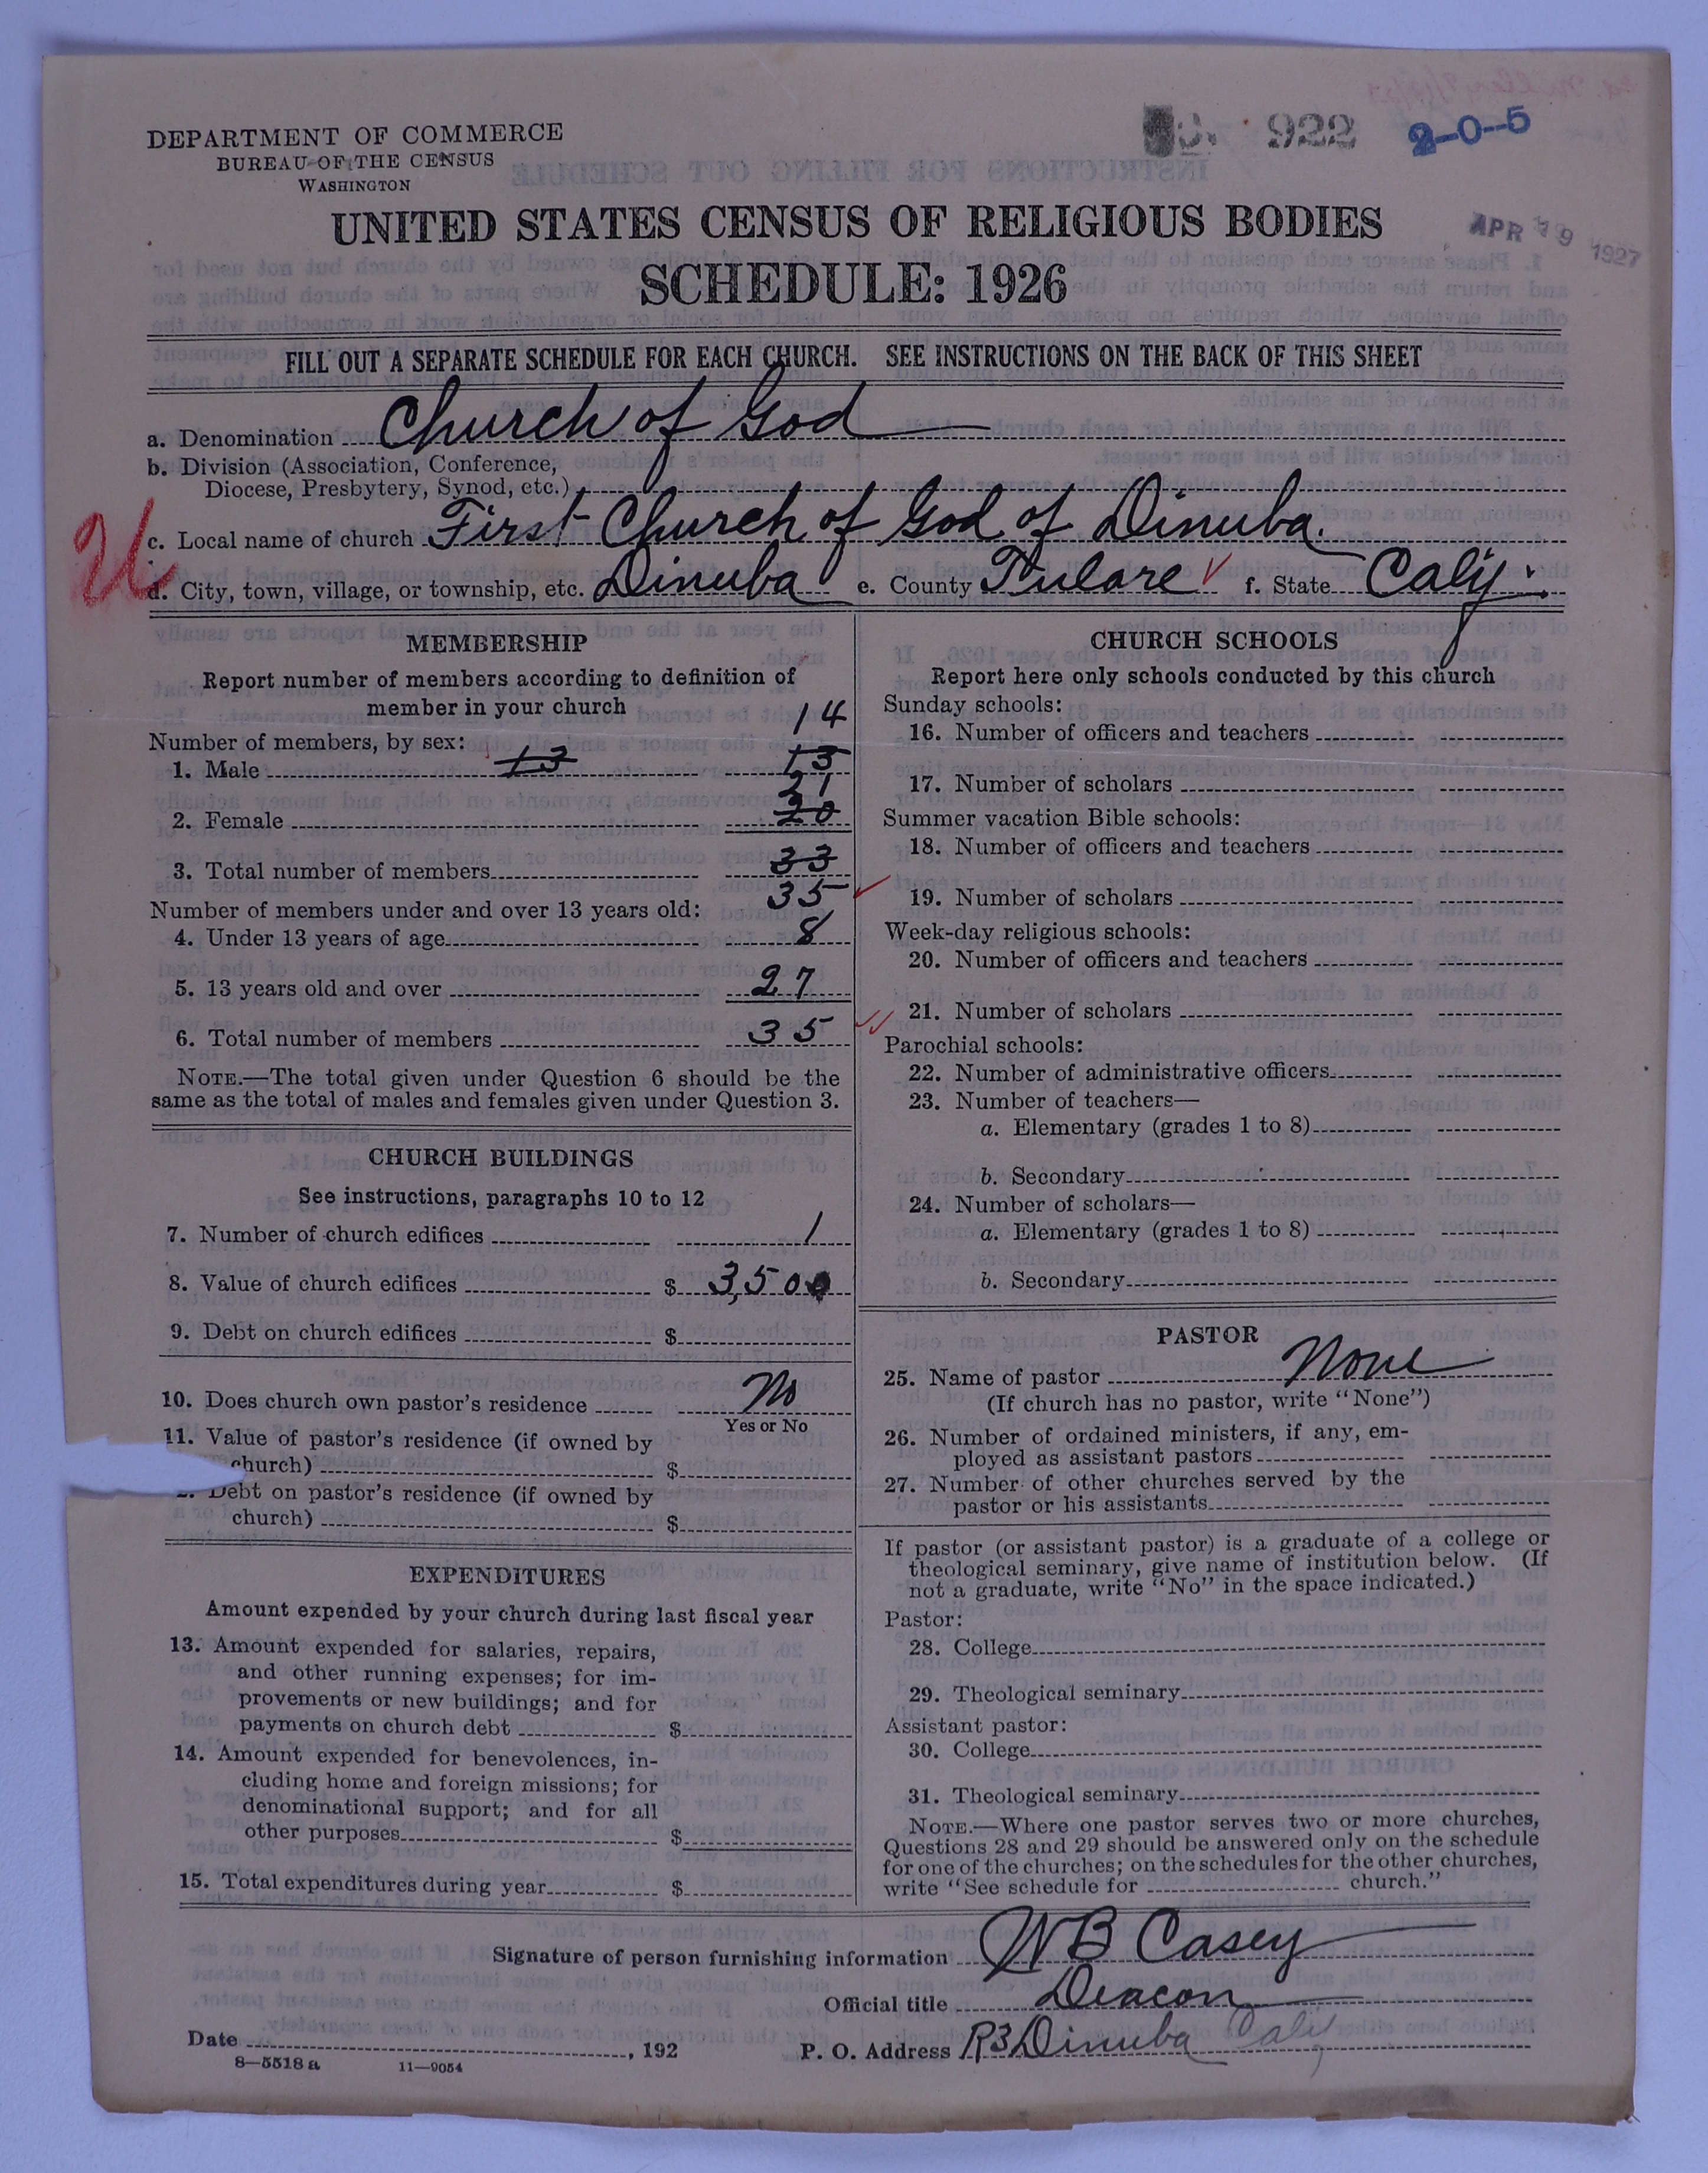 922 2-0-5
DEPARTMENT OF COMMERCE
BUREAU OF THE CENSUS
WASHINGTON
UNITED STATES CENSUS OF RELIGIOUS BODIES
APR 19 1927
SCHEDULE: 1926
FILL OUT A SEPARATE SCHEDULE FOR EACH CHURCH. SEE INSTRUCTIONS ON THE BACK OF THIS SHEET
a. Denomination Church of God
b. Division (Association, Conference,
Diocese, Presbytery, Synod, etc.)
c. Local name of church First Church of God of Dinuba.
U
d. City, town, village, or township, etc. Dinuba e. County Tulare f. State Calif.
MEMBERSHIP
Report number of members according to definition of
member in your church
14
Number of members, by sex:
1. Male 13 13
21
2. Female 20
3. Total number of members 33
35
Number of members under and over 13 years old:
4. Under 13 years of age 8
5. 13 years old and over 27
6. Total number of members 35
NOTE.—The total given under Question 6 should be the
same as the total of males and females given under Question 3.
CHURCH BUILDINGS
See instructions, paragraphs 10 to 12
7. Number of church edifices 1
8. Value of church edifices $ 3,500
9. Debt on church edifices $
10. Does church own pastor's residence No
Yes or No
11. Value of pastor's residence (if owned by
church) $
Debt on pastor's residence (if owned by
church) $
EXPENDITURES
Amount expended by your church during last fiscal year
13. Amount expended for salaries, repairs,
and other running expenses; for im-
provements or new buildings; and for
payments on church debt $
14. Amount expended for benevolences, in-
cluding home and foreign missions; for
denominational support; and for all
other purposes $
15. Total expenditures during year $
CHURCH SCHOOLS
Report here only schools conducted by this church
Sunday schools:
16. Number of officers and teachers
17. Number of scholars
Summer vacation Bible schools:
18. Number of officers and teachers
19. Number of scholars
Week-day religious schools:
20. Number of officers and teachers
21. Number of scholars
Parochial schools:
22. Number of administrative officers
23. Number of teachers—
a. Elementary (grades 1 to 8)
b. Secondary
24. Number of scholars—
a. Elementary (grades 1 to 8)
b. Secondary
PASTOR
25. Name of pastor None
(If church has no pastor, write "None")
26. Number of ordained ministers, if any, em-
ployed as assistant pastors
27. Number of other churches served by the
pastor or his assistants
If pastor (or assistant pastor) is a graduate of a college or
theological seminary, give name of institution below. (If
not a graduate, write "No" in the space indicated.)
Pastor:
28. College
29. Theological seminary
Assistant pastor:
30. College
31. Theological seminary
NOTE.—Where one pastor serves two or more churches,
Questions 28 and 29 should be answered only on the schedule
for one of the churches; on the schedules for the other churches,
write "See schedule for church."
Signature of person furnishing information WB Casey
Official title Deacon
Date , 192 P. O. Address R3 Dinuba Calif
8—5518 a 11—9054